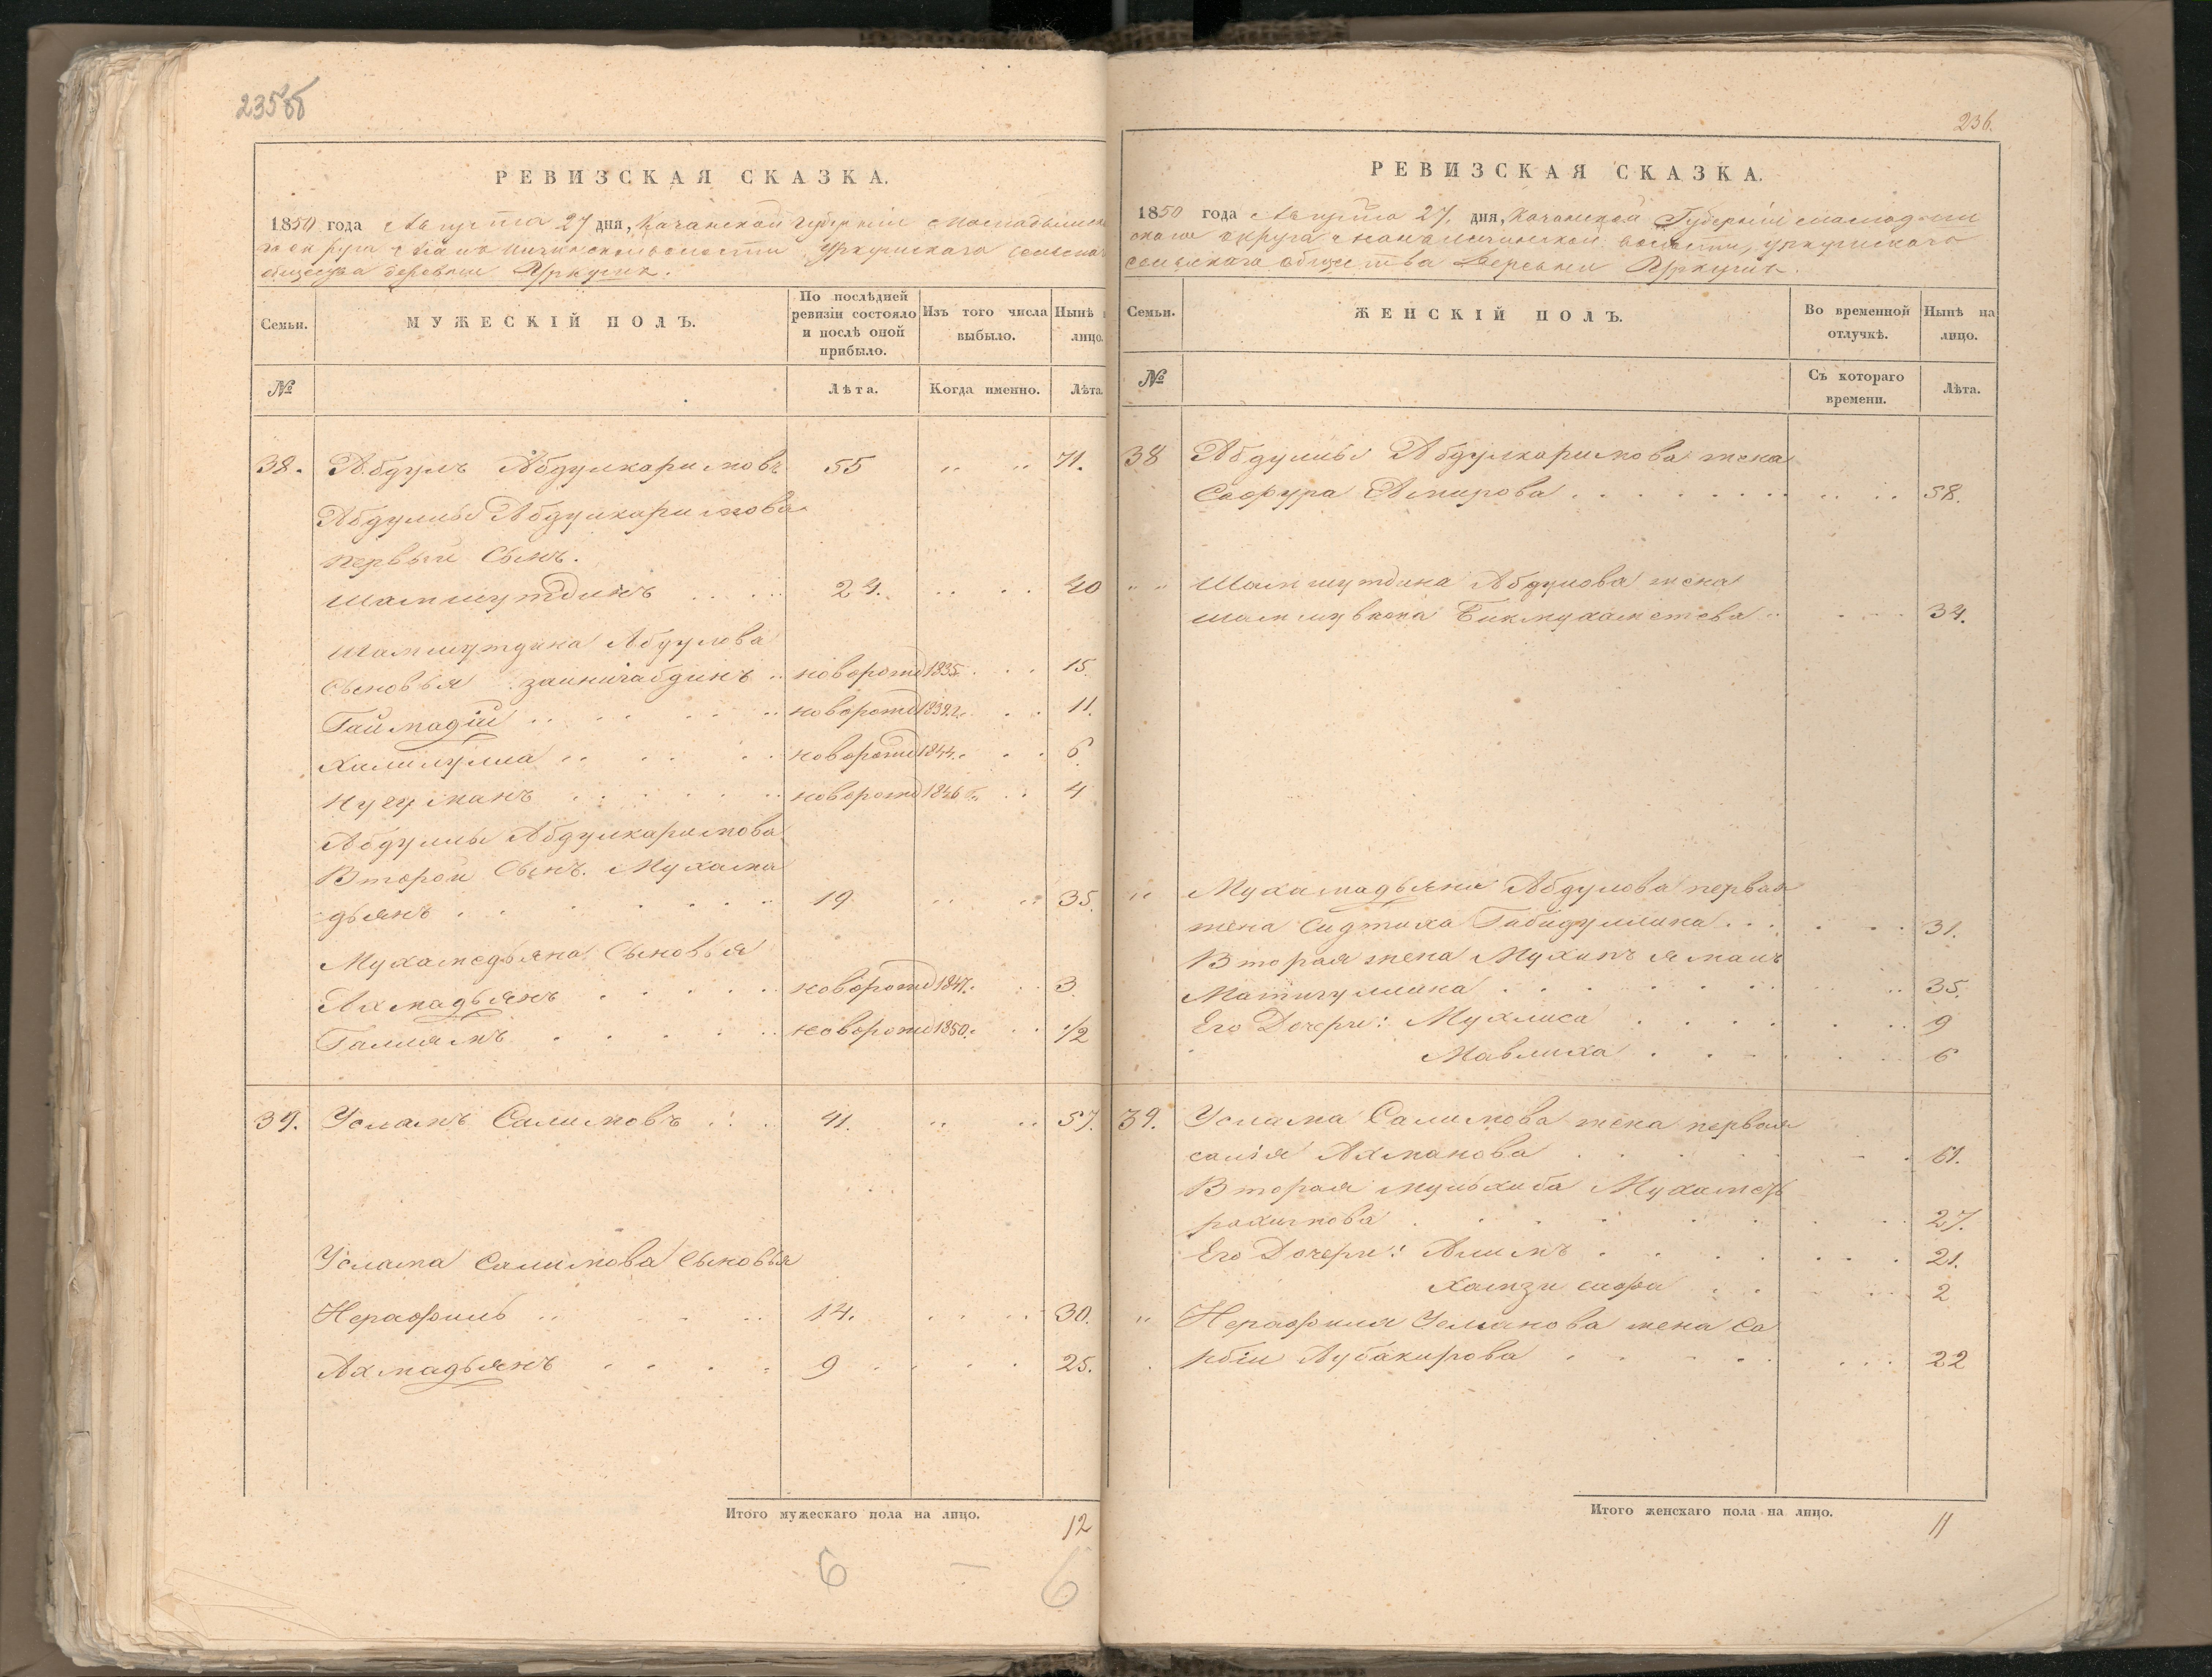 235об
РЕВИЗСКАЯ СКАЗКА.
1850 года Августа 27 дня, Казанской Губерніи Мамадышск
округа волости Уркушскаго сельска
общества деревни Уркушъ.
Семьи.
МУЖЕСКІЙ ПОЛЪ.
По послѣдней ревизіи состояло и послѣ оной прибыло.
Изъ того числа выбыло.
Нынѣ лицо.
№
Лѣта.
Когда именно.
Лѣта
38. Абдулъ Абдулкаримовъ 55 71.
Абдулы Абдулкаримова
первый Сынъ.
Шамшутдинъ 24. 40
Шамшутдина Абдулова
Сыновья Зайнигабдинъ новорожд 1835 15.
Гаймадій новорожд 1839 г. 11.
Халилулла новорожд 1844 6
Нугуманъ новорожд 1846 г. 4
Абдулы Абдулкаримова
Второй Сынъ. Мухама
дьянъ 19 35.
Мухамедьяна Сыновья
Ахмадьянъ новорожд 1847. 3
Галлямъ новорожд 1850. 1/2
39. Усманъ Салимовъ 41. 57.
Услана Салимова Сыновья
Нерафиль 14. 30.
Ахмадьянъ 9 25.
Итого мужескаго пола на лицо. 12
6 – 6
236.
РЕВИЗСКАЯ СКАЗКА.
1850 года Августа 27. дня, Казанской Губерніи Мамадыш
скаго округа волости, Уркушскаго
сельскаго общества Деревни Уркушъ.
Семьи.
ЖЕНСКІЙ ПОЛЪ.
Во временной отлучкѣ.
Нынѣ на лицо.
№
Съ котораго времени.
Лѣта.
38 Абдулы Абдулкаримова жена
Сафура Амирова 58.
Шамшутдина Абдулова жена
Бикмухаметева 34.
Мухамадьяна Абдулова первая
жена Сидтика Габидуллина 31.
Вторая жена Мухипъ ямалъ
Матигуллина 35.
Его Дочери: Мухлиса 9
Мавлиха 6
39. Услана Салимова жена первая
салія Ахманова 61.
Вторая мульхиба Мухаметъ
рахимова 27.
Его Дочери: Алимъ 21.
2
Нерафиля Усманова жена Са
нбіи Аубакирова 22
Итого женскаго пола на лицо. 11